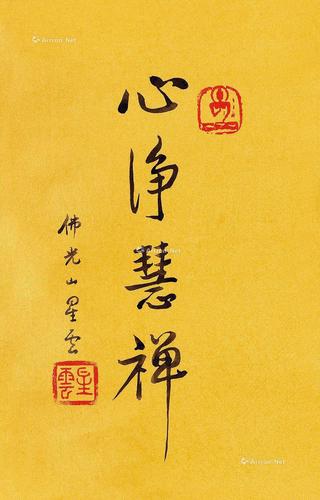 心净慧禅
佛光山星雲
星雲
Artron.Net
Artron.Net
Artron.Net